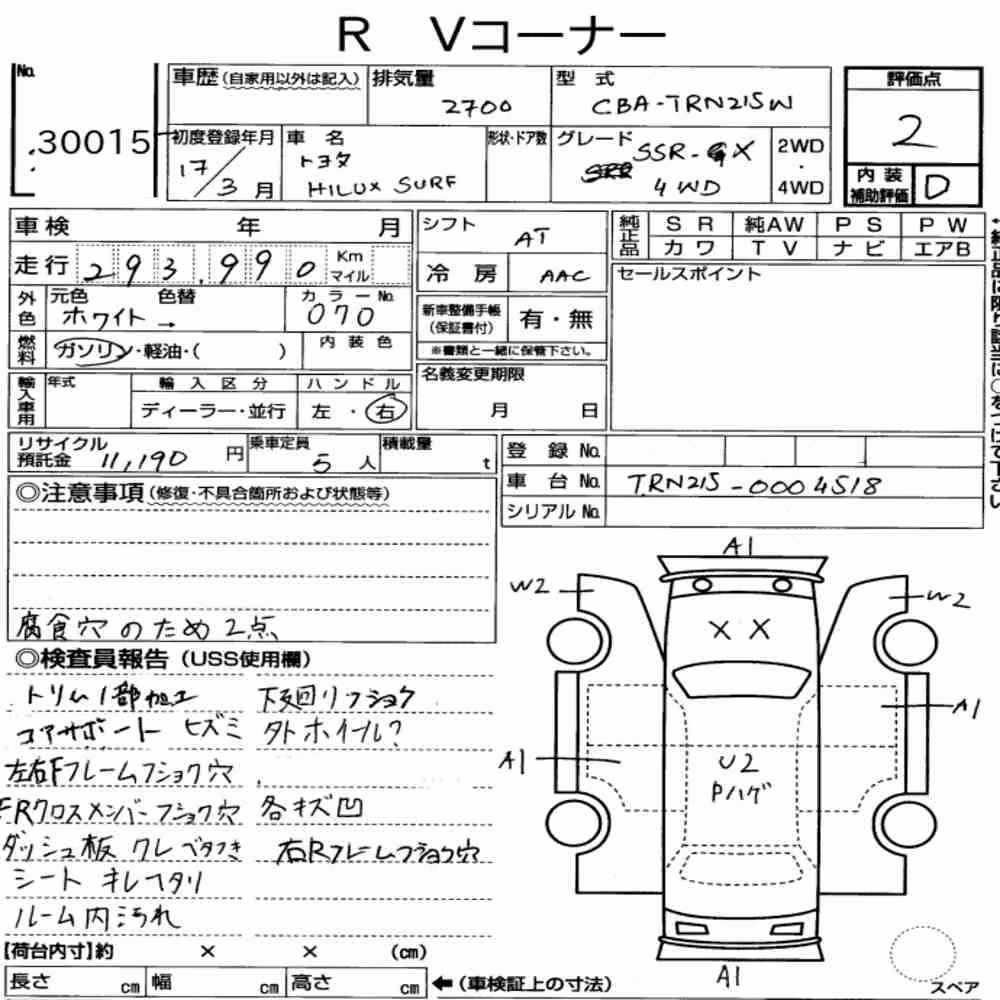 R Vコーナー
No.
30015
車歴(自家用以外は記入)
排気量
2700
型 式
CBA-TRN215W
評価点
2
初度登録年月
17/3月
車 名
トヨタ
HILUX SURF
形状・ドア数
グレード
SSR-X
4WD
2WD
・
4WD
内 装
補助評価
D
車検 年 月
走行 293,990 Km マイル
シフト
AT
冷 房
AAC
純正品
S R
純AW
P S
P W
カ ワ
T V
ナ ビ
エアB
セールスポイント
外色
元色 色替
ホワイト→
カラーNo.
070
新車整備手帳
(保証書付)
有・無
※書類と一緒に保管下さい。
燃料
ガソリン・軽油・( )
内 装 色
名義変更期限
月 日
輸入車用
年式
輸 入 区 分
ディーラー・並行
ハ ン ド ル
左 ・ 右
リサイクル
預託金 11,190 円
乗車定員
5 人
積載量
t
登 録 No.
車 台 No.
TRN215-0004518
シリアル No.
◎注意事項(修復・不具合箇所および状態等)
腐食穴のため2点
◎検査員報告(USS使用欄)
トリム1部加工 下廻リフショク
コアサポート ヒズミ 外ホイール?
左右Fフレームフショク穴
FRクロスメンバーフショク穴 各キズ凹
ダッシュ板 ワレ ベタつき 右Rフレームフショク穴
シート キレヘタリ
ルーム内汚れ
【荷台内寸】約 × × (cm)
長さ cm 幅 cm 高さ cm ←(車検証上の寸法)
A1
W2
W2
X X
A1
A1
U2
Pハゲ
A1
スペア